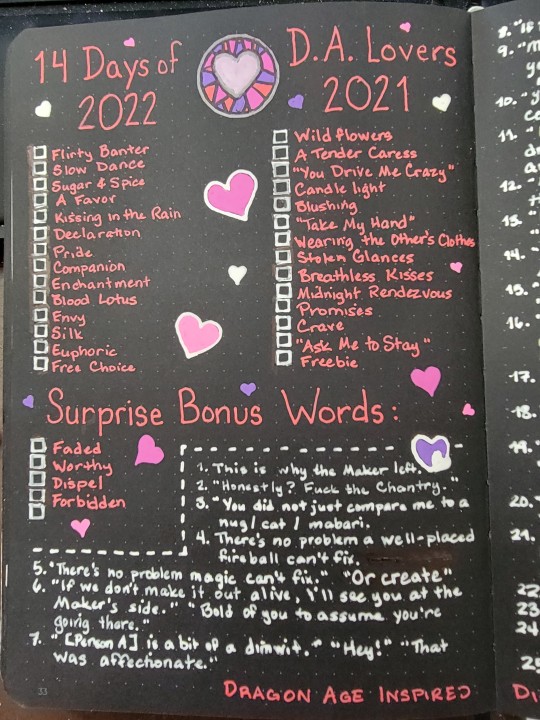 14 Days of
2022
Flirty Banter
Slow Dance
Sugar & Spice
A Favor
Kissing in the Rain
Declaration
Pride
Companion
Enchantment
Blood Lotus
Envy
Silk
Euphoric
Free Choice
D.A. Lovers
2021
Wildflowers
A Tender Caress
"You Drive Me Crazy"
Candle light
Blushing
"Take My Hand"
Wearing the Other's Clothes
Stolen Glances
Breathless Kisses
Midnight Rendezvous
Promises
Crave
"Ask Me to Stay"
Freebie
Surprise Bonus Words:
Faded
Worthy
Dispel
Forbidden
1. This is why the Maker left.
2. "Honestly? Fuck the Chantry."
3. "You did not just compare me to a
nug/cat/mabari.
4. There's no problem a well-placed
fireball can't fix.
5. "There's no problem magic can't fix." "Or create"
6. "If we don't make it out alive, I'll see you at the
Maker's side." "Bold of you to assume you're
going there."
7. "[Person A] is a bit of a dimwit." "Hey!" "That
was affectionate."
33
DRAGON AGE INSPIRED
8. "If
9. "M
10. "y
11. "
12. "
13. "
14. "
15. "
16. "
17.
18.
19.
20.
21.
22
23
24
25